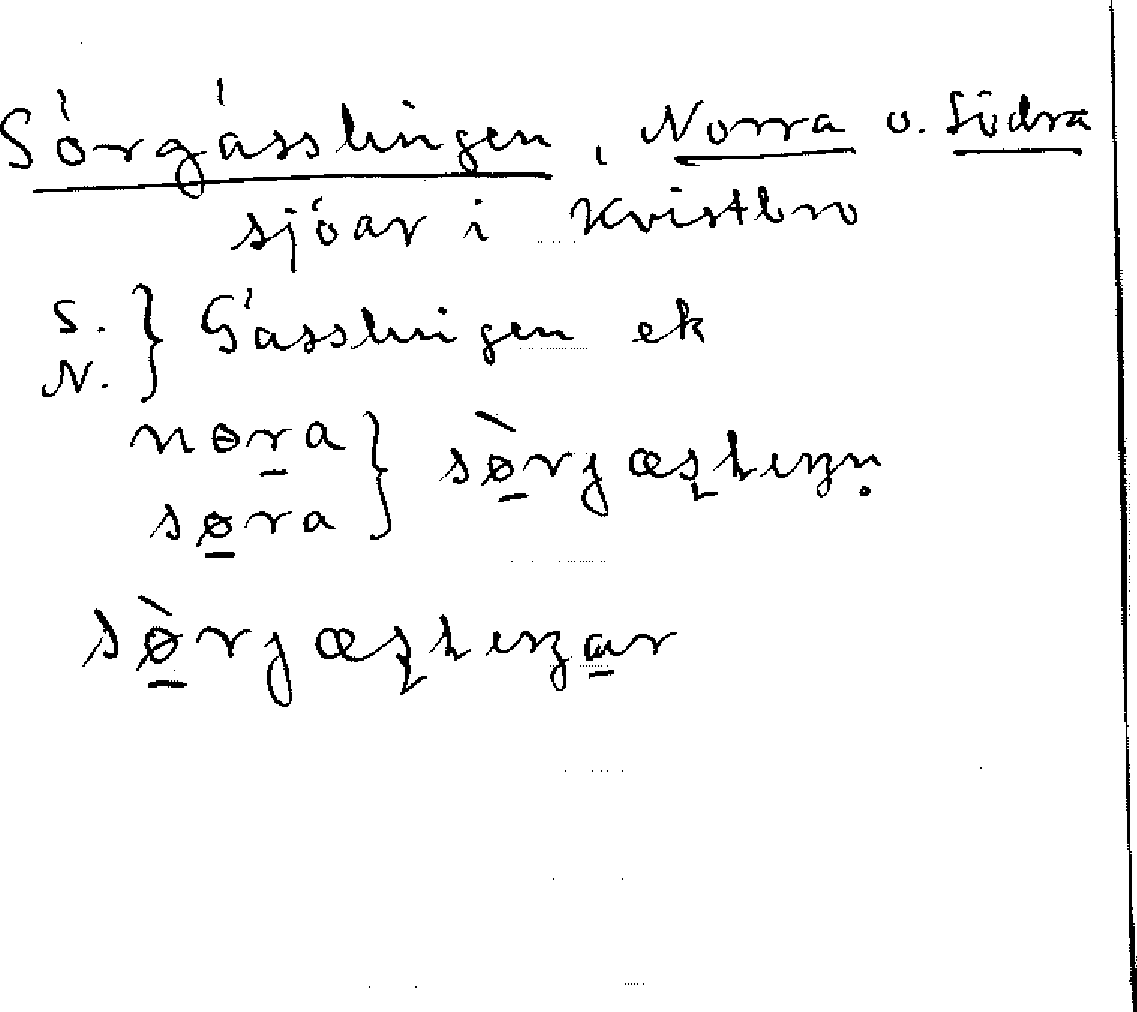 Sörgässlingen, Norra o. Södra
sjöar i Kvistbro
S. } Gässlingen ek
N.
nɵra } sø̀rjæsliŋn̥
søra
sø̀rjæsliŋar